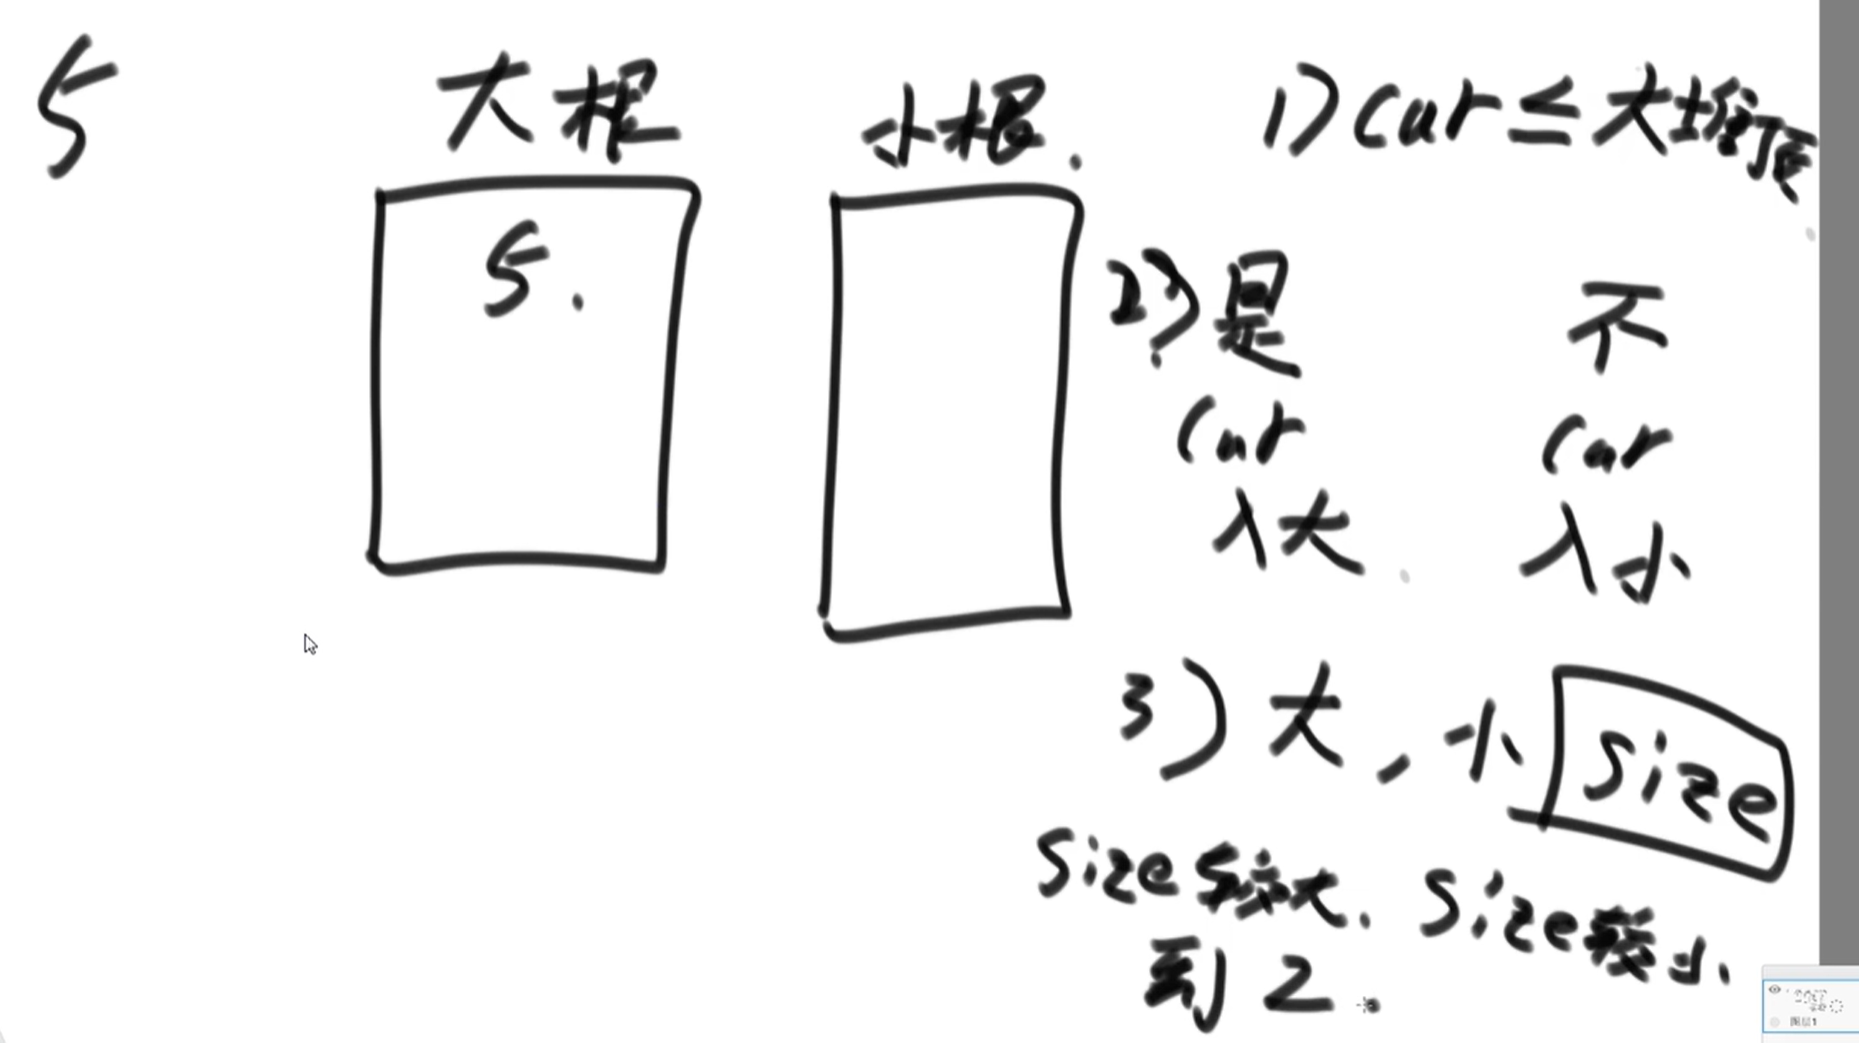 5
大根 小根.
5.
1) cur ≤ 大堆顶
2) 是 不
cur cur
入大 入小
3) 大, 小 size
size较大. size较小.
到 2.
图层1